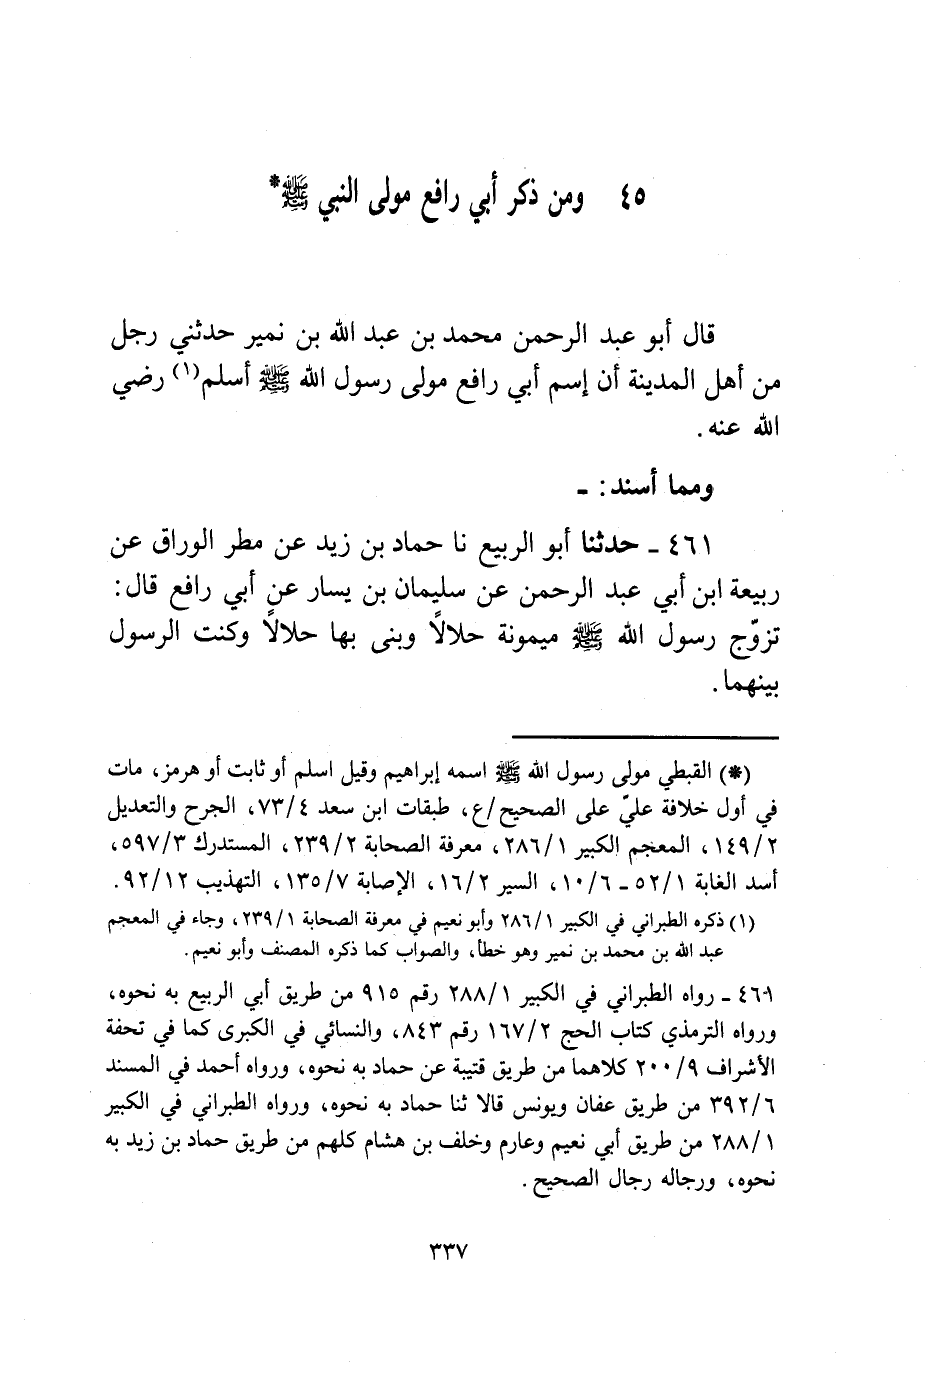 ٤٥ ومن ذكر أبي رافع مولى النبي ﷺ*
قال أبو عبد الرحمن محمد بن عبد الله بن نمير حدثني رجل
من أهل المدينة أن إسم أبي رافع مولى رسول الله ﷺ أسلم(١) رضي
الله عنه.
ومما أسند: -
٤٦١ - حدثنا أبو الربيع نا حماد بن زيد عن مطر الوراق عن
ربيعة ابن أبي عبد الرحمن عن سليمان بن يسار عن أبي رافع قال:
تزوّج رسول الله ﷺ ميمونة حلالاً وبنى بها حلالاً وكنت الرسول
بينهما.
(*) القبطي مولى رسول الله ﷺ اسمه إبراهيم وقيل اسلم أو ثابت أو هرمز، مات
في أول خلافة عليّ على الصحيح/ع، طبقات ابن سعد ٧٣/٤، الجرح والتعديل
١٤٩/٢، المعجم الكبير ٢٨٦/١، معرفة الصحابة ٢٣٩/٢، المستدرك ٥٩٧/٣،
أسد الغابة ٥٢/١ - ١٠/٦، السير ١٦/٢، الإصابة ١٣٥/٧، التهذيب ٩٢/١٢.
(١) ذكره الطبراني في الكبير ٢٨٦/١ وأبو نعيم في معرفة الصحابة ٢٣٩/١، وجاء في المعجم
عبد الله بن محمد بن نمير وهو خطأ، والصواب كما ذكره المصنف وأبو نعيم.
٤٦١ - رواه الطبراني في الكبير ٢٨٨/١ رقم ٩١٥ من طريق أبي الربيع به نحوه،
ورواه الترمذي كتاب الحج ١٦٧/٢ رقم ٨٤٣، والنسائي في الكبرى كما في تحفة
الأشراف ٢٠٠/٩ كلاهما من طريق قتيبة عن حماد به نحوه، ورواه أحمد في المسند
٣٩٢/٦ من طريق عفان ويونس قالا ثنا حماد به نحوه، ورواه الطبراني في الكبير
٢٨٨/١ من طريق أبي نعيم وعارم وخلف بن هشام كلهم من طريق حماد بن زيد به
نحوه، ورجاله رجال الصحيح.
٣٣٧